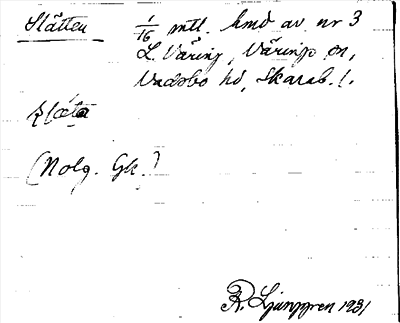 Slätten 1/16 mtl. hmd av nr 3
L. Väring, Värings sn,
Vadsbo hd, Skarab. l.
slæ̀ta
(Nolg. Gk.)
R. Ljunggren 1931